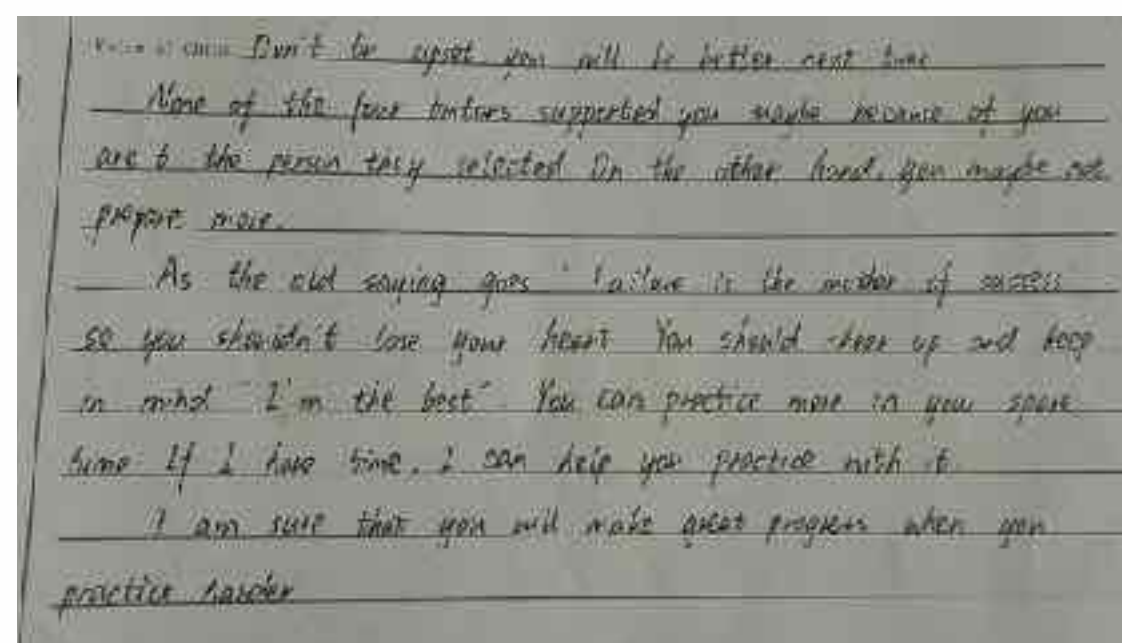 Voice of China. Don't be upset you will be better next time
None of the four tutors supported you maybe because of you
are t the person they selected On the other hand, you maybe not
prepare more.
As the old saying goes " Failure is the mother of success
so you shouldn't lose your heart You should cheer up and keep
in mind "I'm the best". You can practice more in your spare
time If I have time, I can help you practice with it
I am sure that you will make great progress when you
practice harder